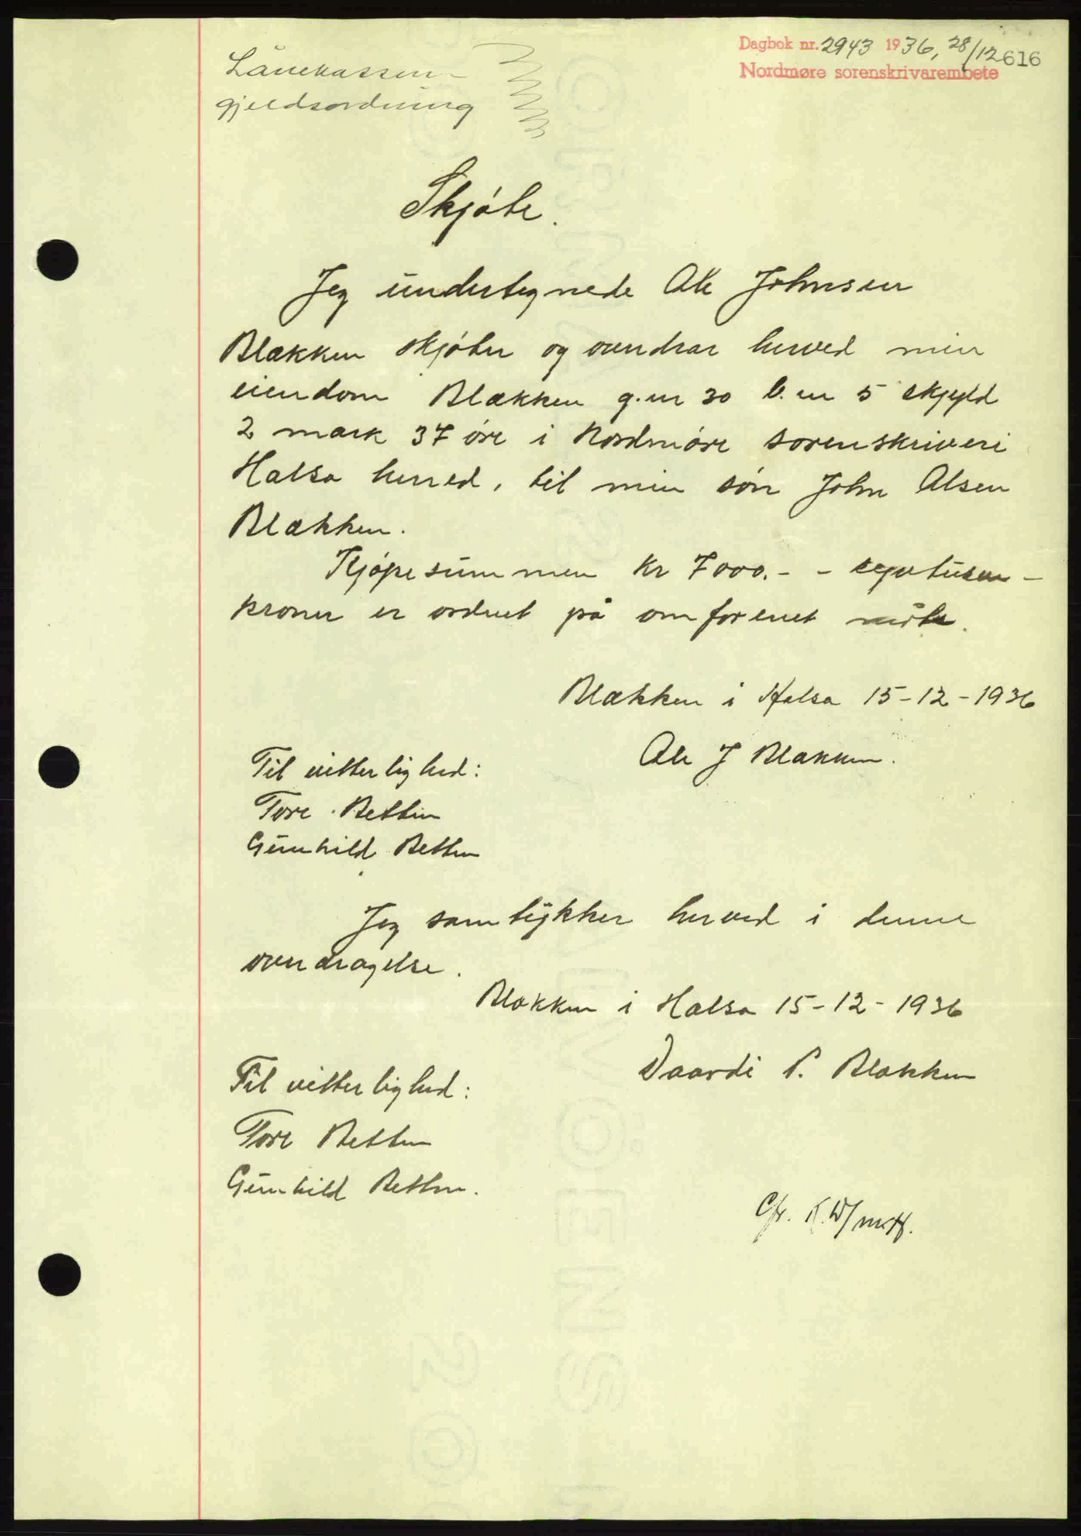 Dagbok nr. 2943 1936, 28/12 616
Nordmøre sorenskrivarembete
Lånekassen
gjeldsordning
Skjøte.
Jeg undertegnede Ole Johnsen
Blækken skjøter og overdrar herved min
eiendom Blækken g.nr 30 b.nr 5 skyld
2 mark 37 øre i Nordmøre sorenskriveri
Halsa herred, til min søn John Olsen
Blækken.
Kjøpesummen kr 7000.- - syvtusen -
kroner er ordnet på omforenet måte.
Blækken i Halsa 15-12-1936
Ole J Blækken.
Til vitterlighed:
Tore Betten
Gunhild Betten
Jeg samtykker herved i denne
overdragelse.
Blækken i Halsa 15-12-1936
Til vitterlighed:
Tore Betten
Gunhild Betten.
P. Blækken
Cfr.